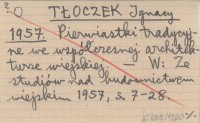 TŁOCZEK Ignacy
1957. Pierwiastki tradycyj-
ne we współczesnej architek-
turze wiejskiej. — W: Ze
studiów nad budownictwem
wiejskim 1957, s. 7-28.